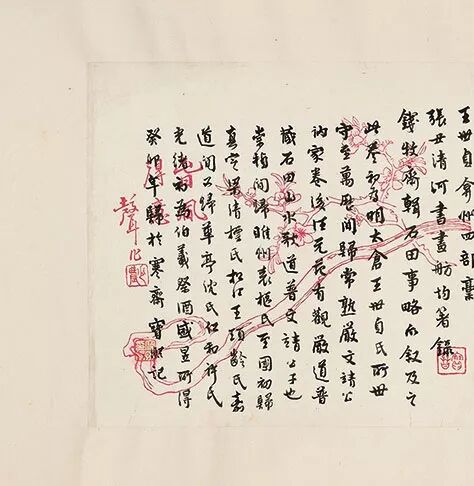 王世貞弇州四部稾
張丑清河書畫舫均著錄
錢牧齋輯石田事略亦敘及之
此卷初為明太倉王世貞氏所世
守至萬曆間歸常熟嚴文靖公
訥家卷後 有觀嚴道普
藏石田山水 道普文靖公子也
崇禎間歸睢州袁樞氏至國初歸
真定梁清標氏松江王頊齡氏嘉
道間又歸 亭沈氏 初 氏
光緒初為伯羲祭酒盛昱所得
癸卯年歸於寒齋寶熙記
春風